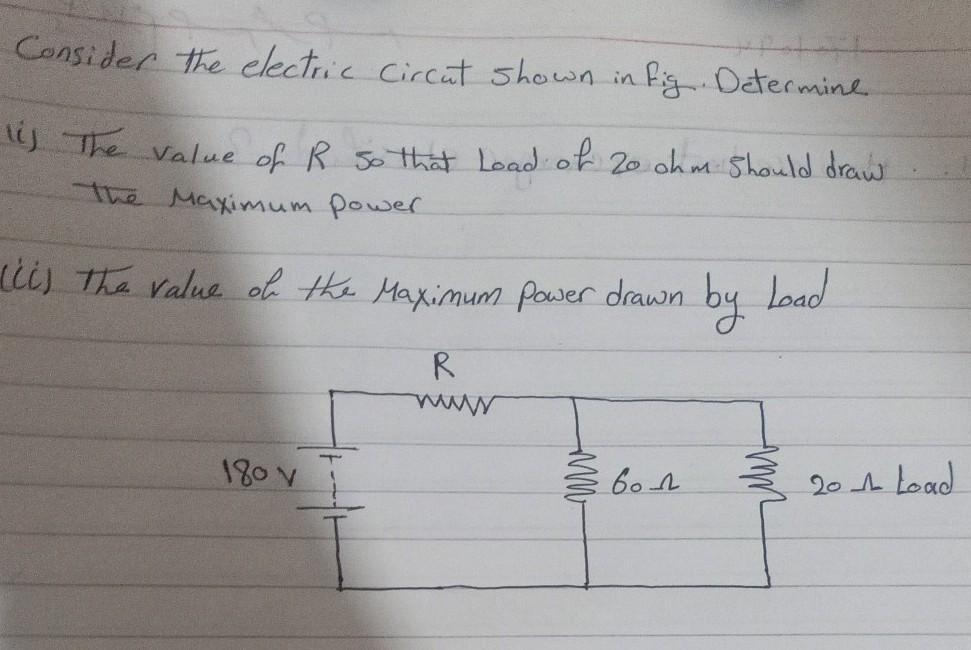 Consider the electric Circut shown in fig. Determine
(i) The value of R so that Load of 20 ohm should draw
the Maximum power
(ii) The value of the Maximum Power drawn by Load
R
180 V
60 Ω
20 Ω Load